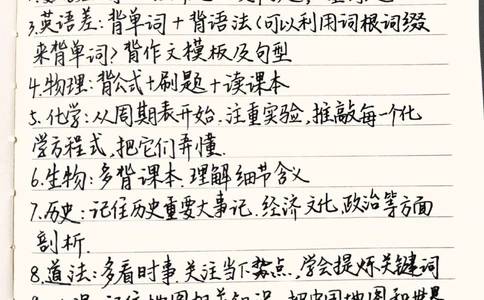 3.英语差:背单词+背语法(可以利用词根词缀
来背单词)背作文模板及句型
4.物理:背公式+刷题+读课本
5.化学:从周期表开始.注重实验,推敲每一个化
学方程式,把它们弄懂.
6.生物:多背课本.理解细节含义
7.历史:记住历史重要大事记.经济文化,政治等方面
剖析.
8.道法:多看时事关注当下热点,学会提炼关键词
记住地图相关知识.把中国地图和世界